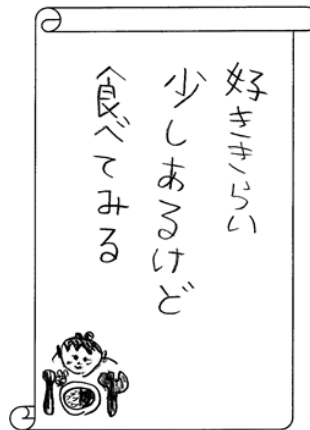 好ききらい
少しあるけど
食べてみる